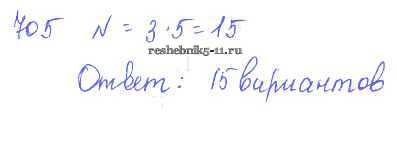 705 N = 3 · 5 = 15
reshebnik5-11.ru
Ответ: 15 вириантов